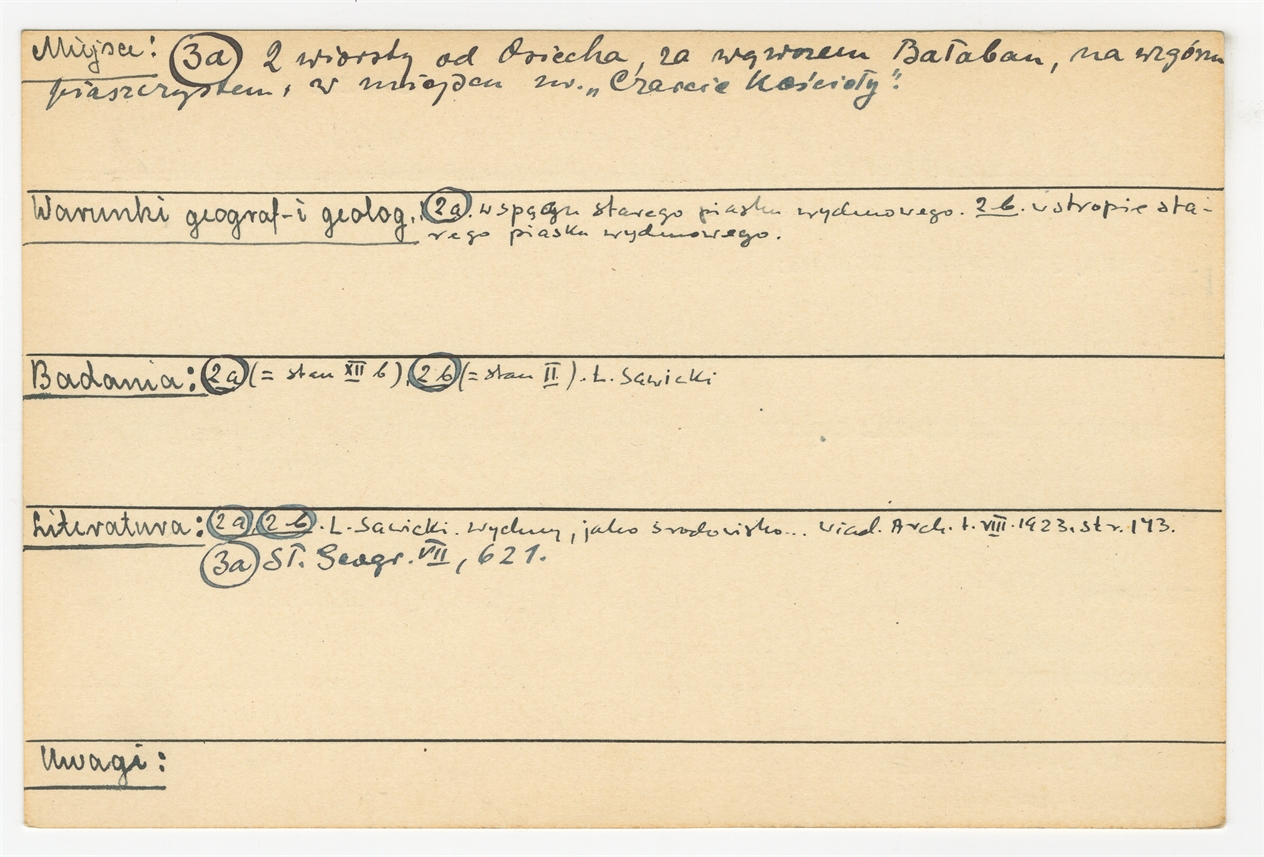 Miejsce: 3a 2 wiorsty od Osiecka, za wąwozem Bałaban, na wzgórzu
piaszczystem, w miejscu zw. „Czarcie Kościoły".
Warunki geograf-i geolog.: 2a. w spągu starego piasku wydmowego. 2b. w stropie sta-
rego piasku wydmowego.
Badania: 2a (= stan XII b), 2b (= stan II). L. Sawicki
Literatura: 2a, 2b. L. Sawicki. Wydmy, jako środowisko... Wiad. Arch. t. VIII. 1923. str. 173.
3a Sł. Geogr. VII, 621.
Uwagi: